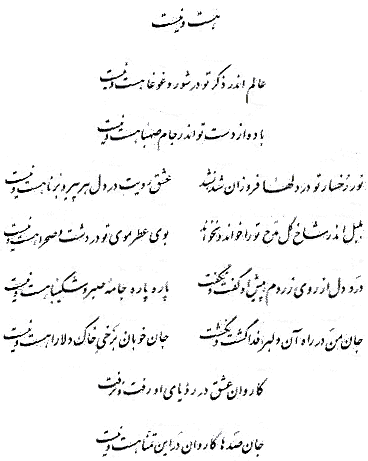 هست و نیست
عالم اندر ذکر تو در شور و غوغا هست و نیست
باده از دست تو اندر جام صهبا هست و نیست
نور رخسار تو در دلها فروزان شد نشد
عشق رویت در دل هر پیر و برنا هست و نیست
بلبل اندر شاخ گل مدح تو را خواند و نخواند
بوی عطر موی تو در دشت و صحرا هست و نیست
درد دل از روی زردم پیش او گفت و نگفت
پاره پاره جامهٔ صبر و شکیبا هست و نیست
جان من در راه آن دلبر فدا گشت و نگشت
جان خوبان برخی خاک دلارا هست و نیست
کاروان عشق در رد پای او رفت و نرفت
جان صدها کاروان در این تمنا هست و نیست